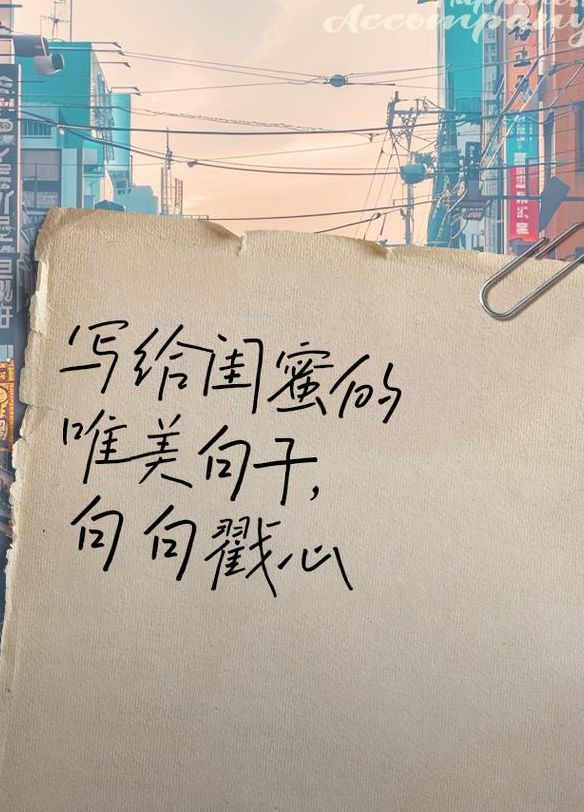 Accompany
写给闺蜜的
唯美句子,
句句戳心